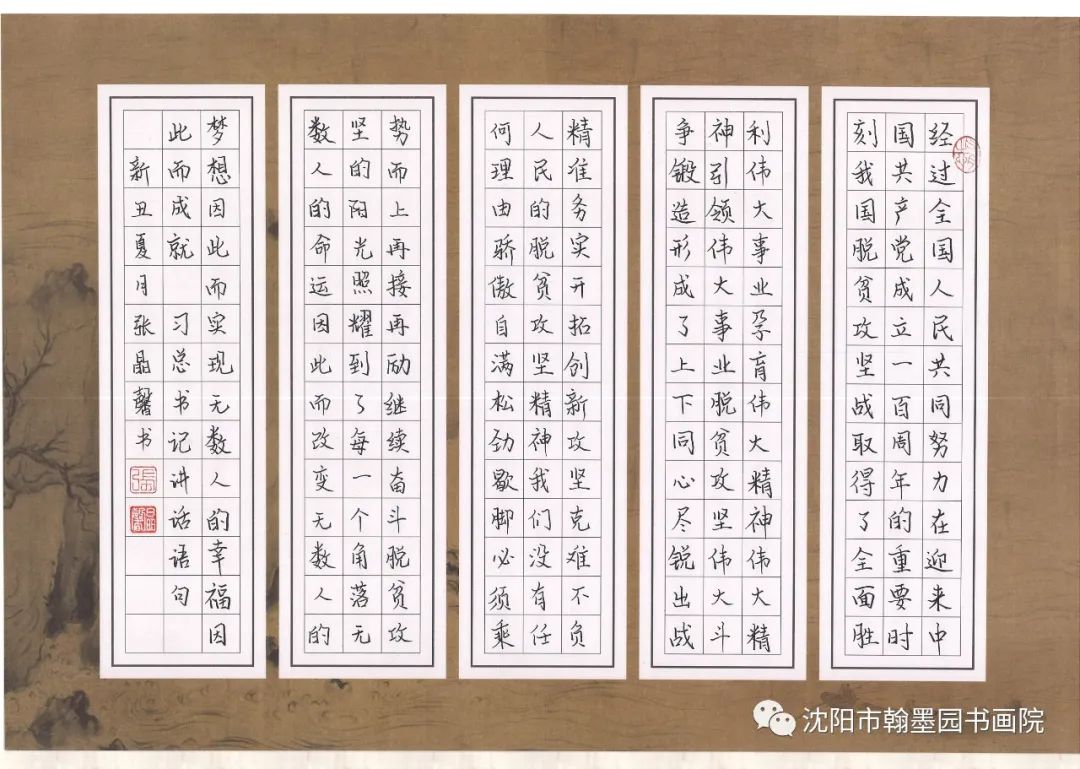 经过全国人民共同努力在迎来中
国共产党成立一百周年的重要时
刻我国脱贫攻坚战取得了全面胜
利伟大事业孕育伟大精神伟大精
神引领伟大事业脱贫攻坚伟大斗
争锻造形成了上下同心尽锐出战
精准务实开拓创新攻坚克难不负
人民的脱贫攻坚精神我们没有任
何理由骄傲自满松劲歇脚必须乘
势而上再接再励继续奋斗脱贫攻
坚的阳光照耀到了每一个角落无
数人的命运因此而改变无数人的
梦想因此而实现无数人的幸福因
此而成就 习总书记讲话语句
新丑夏月张晶馨书
張
沈阳市翰墨园书画院